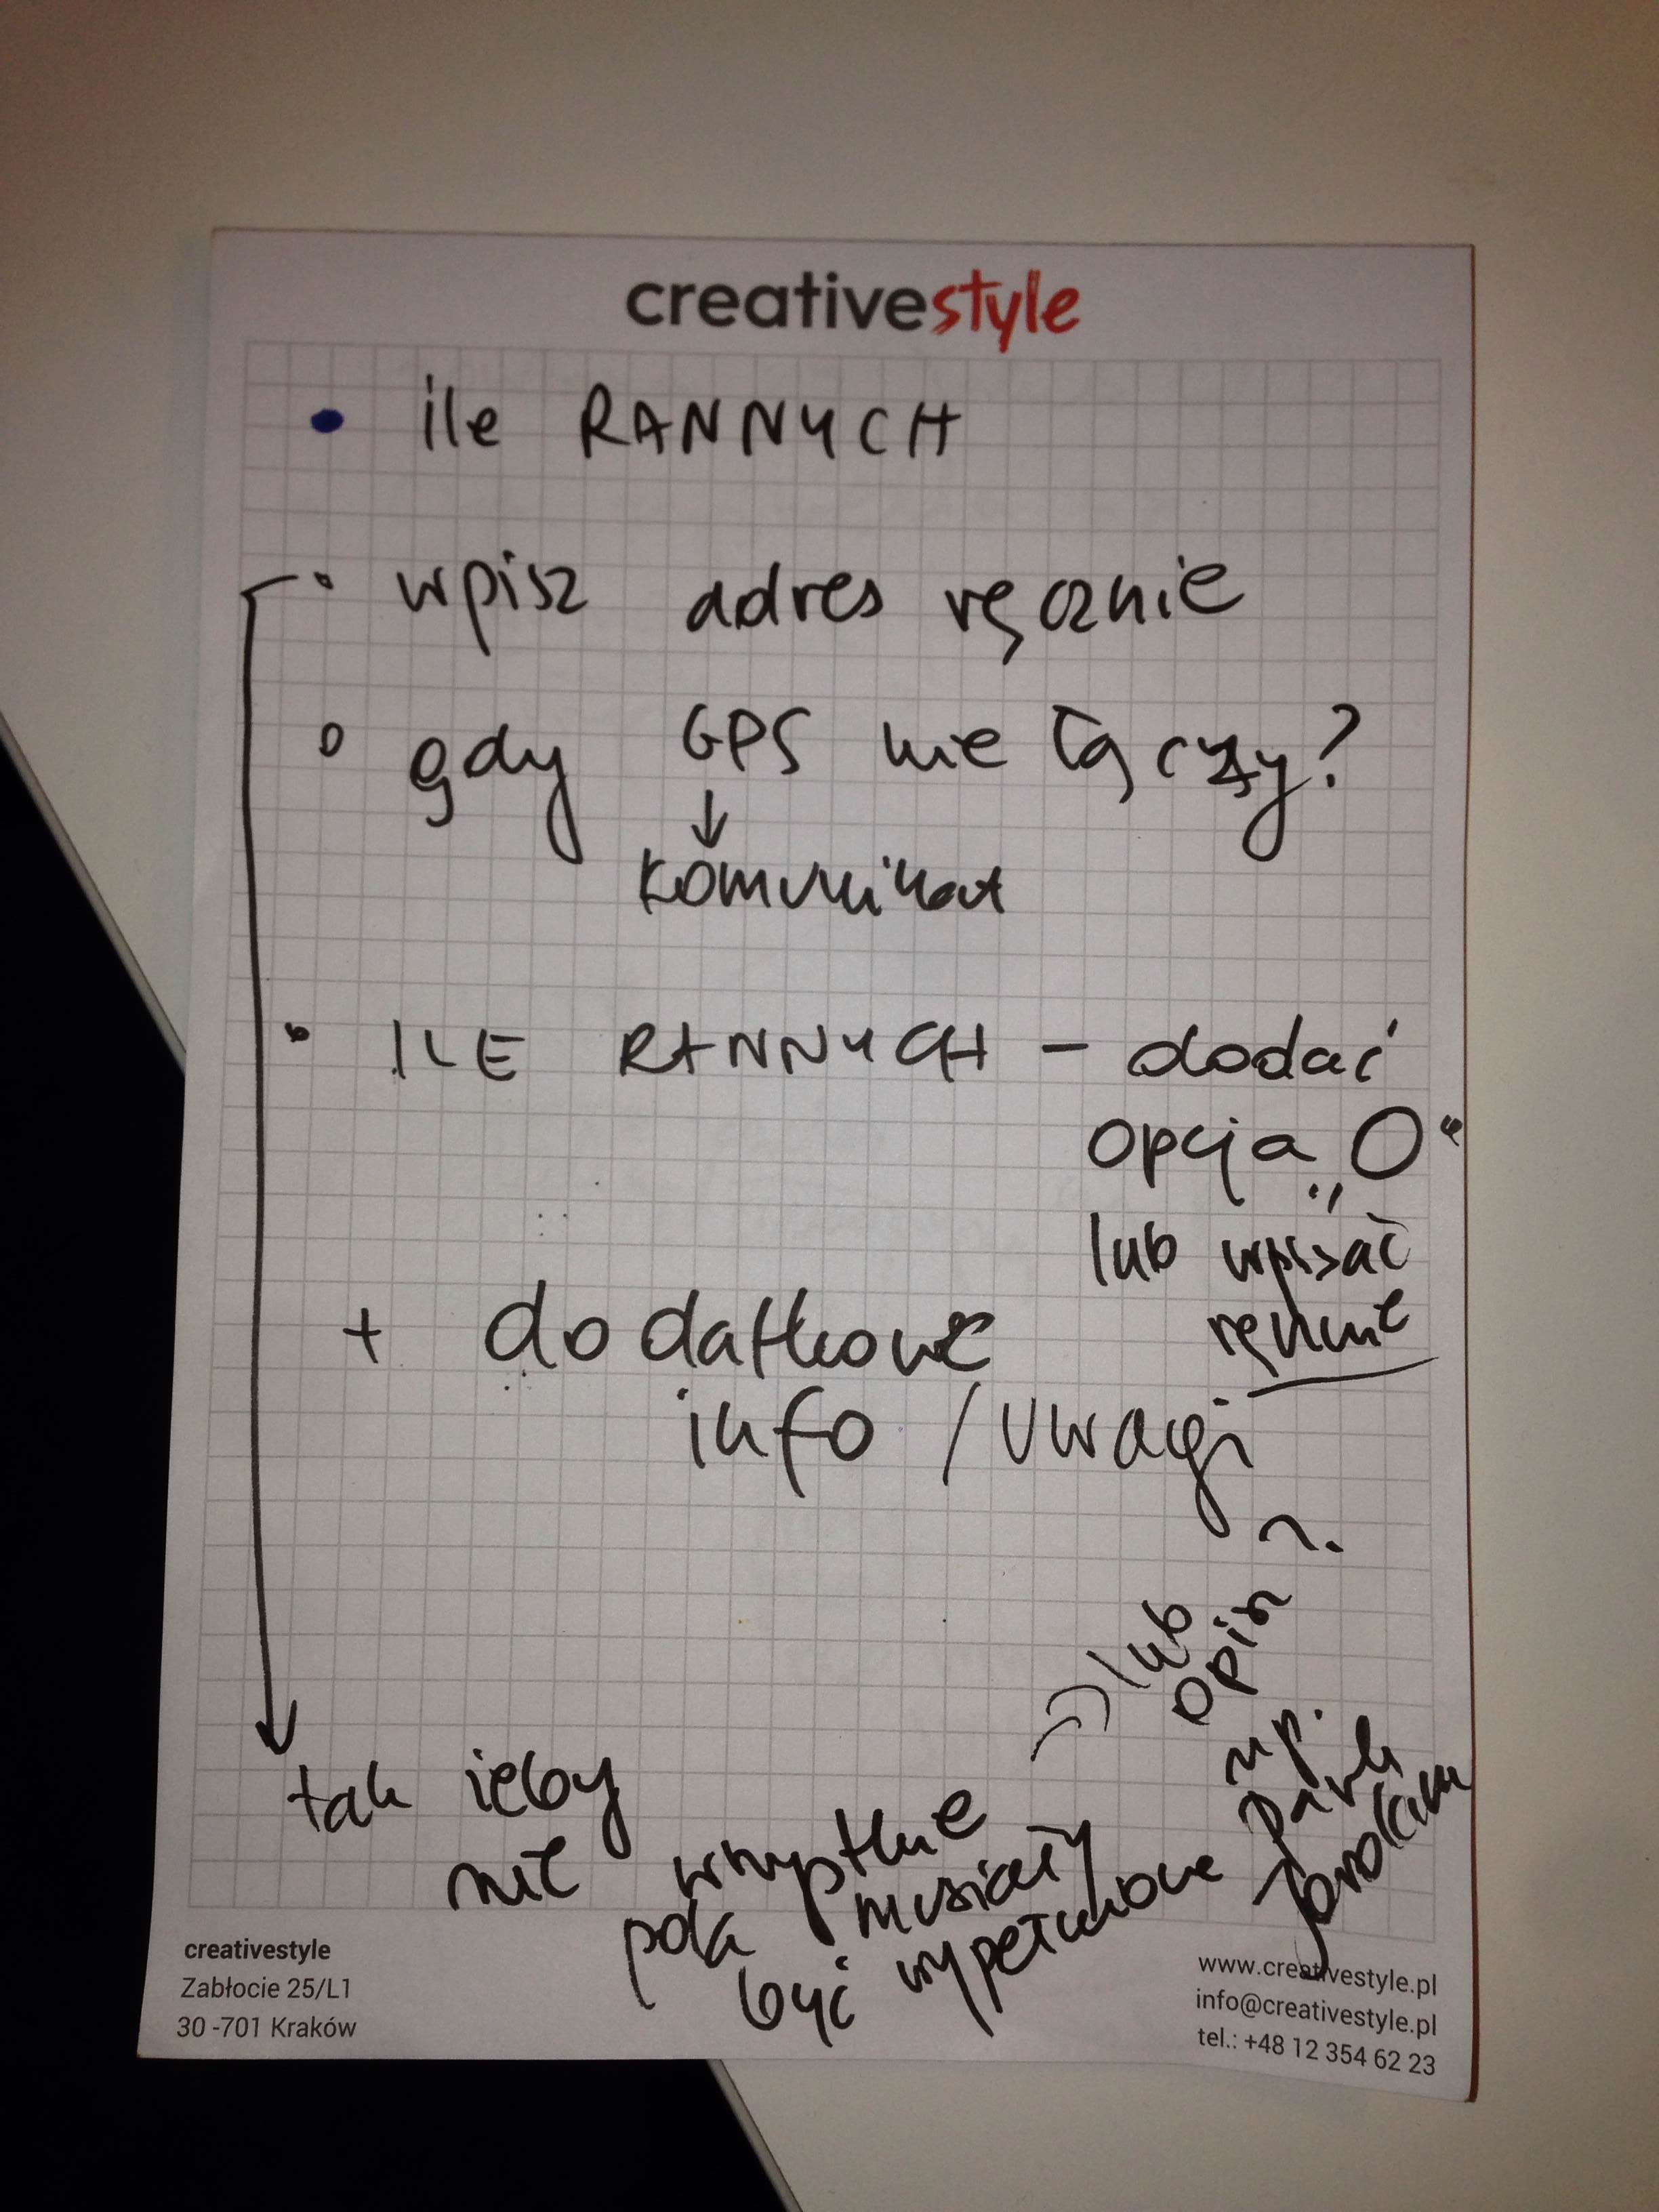 creativestyle
• ile RANNYCH
• wpisz adres ręcznie
• gdy GPS nie łączy?
↓
komunikat
• ILE RANNYCH – dodać
opcja „0“
lub wpisać
ręcznie
+ dodatkowe
info / uwagi
lub
opis ?
np.
park
Jordana
tak żeby
nie wszystkie
pola musiały
być wypełnione
creativestyle
Zabłocie 25/L1
30 -701 Kraków
www.creativestyle.pl
info@creativestyle.pl
tel.: +48 12 354 62 23